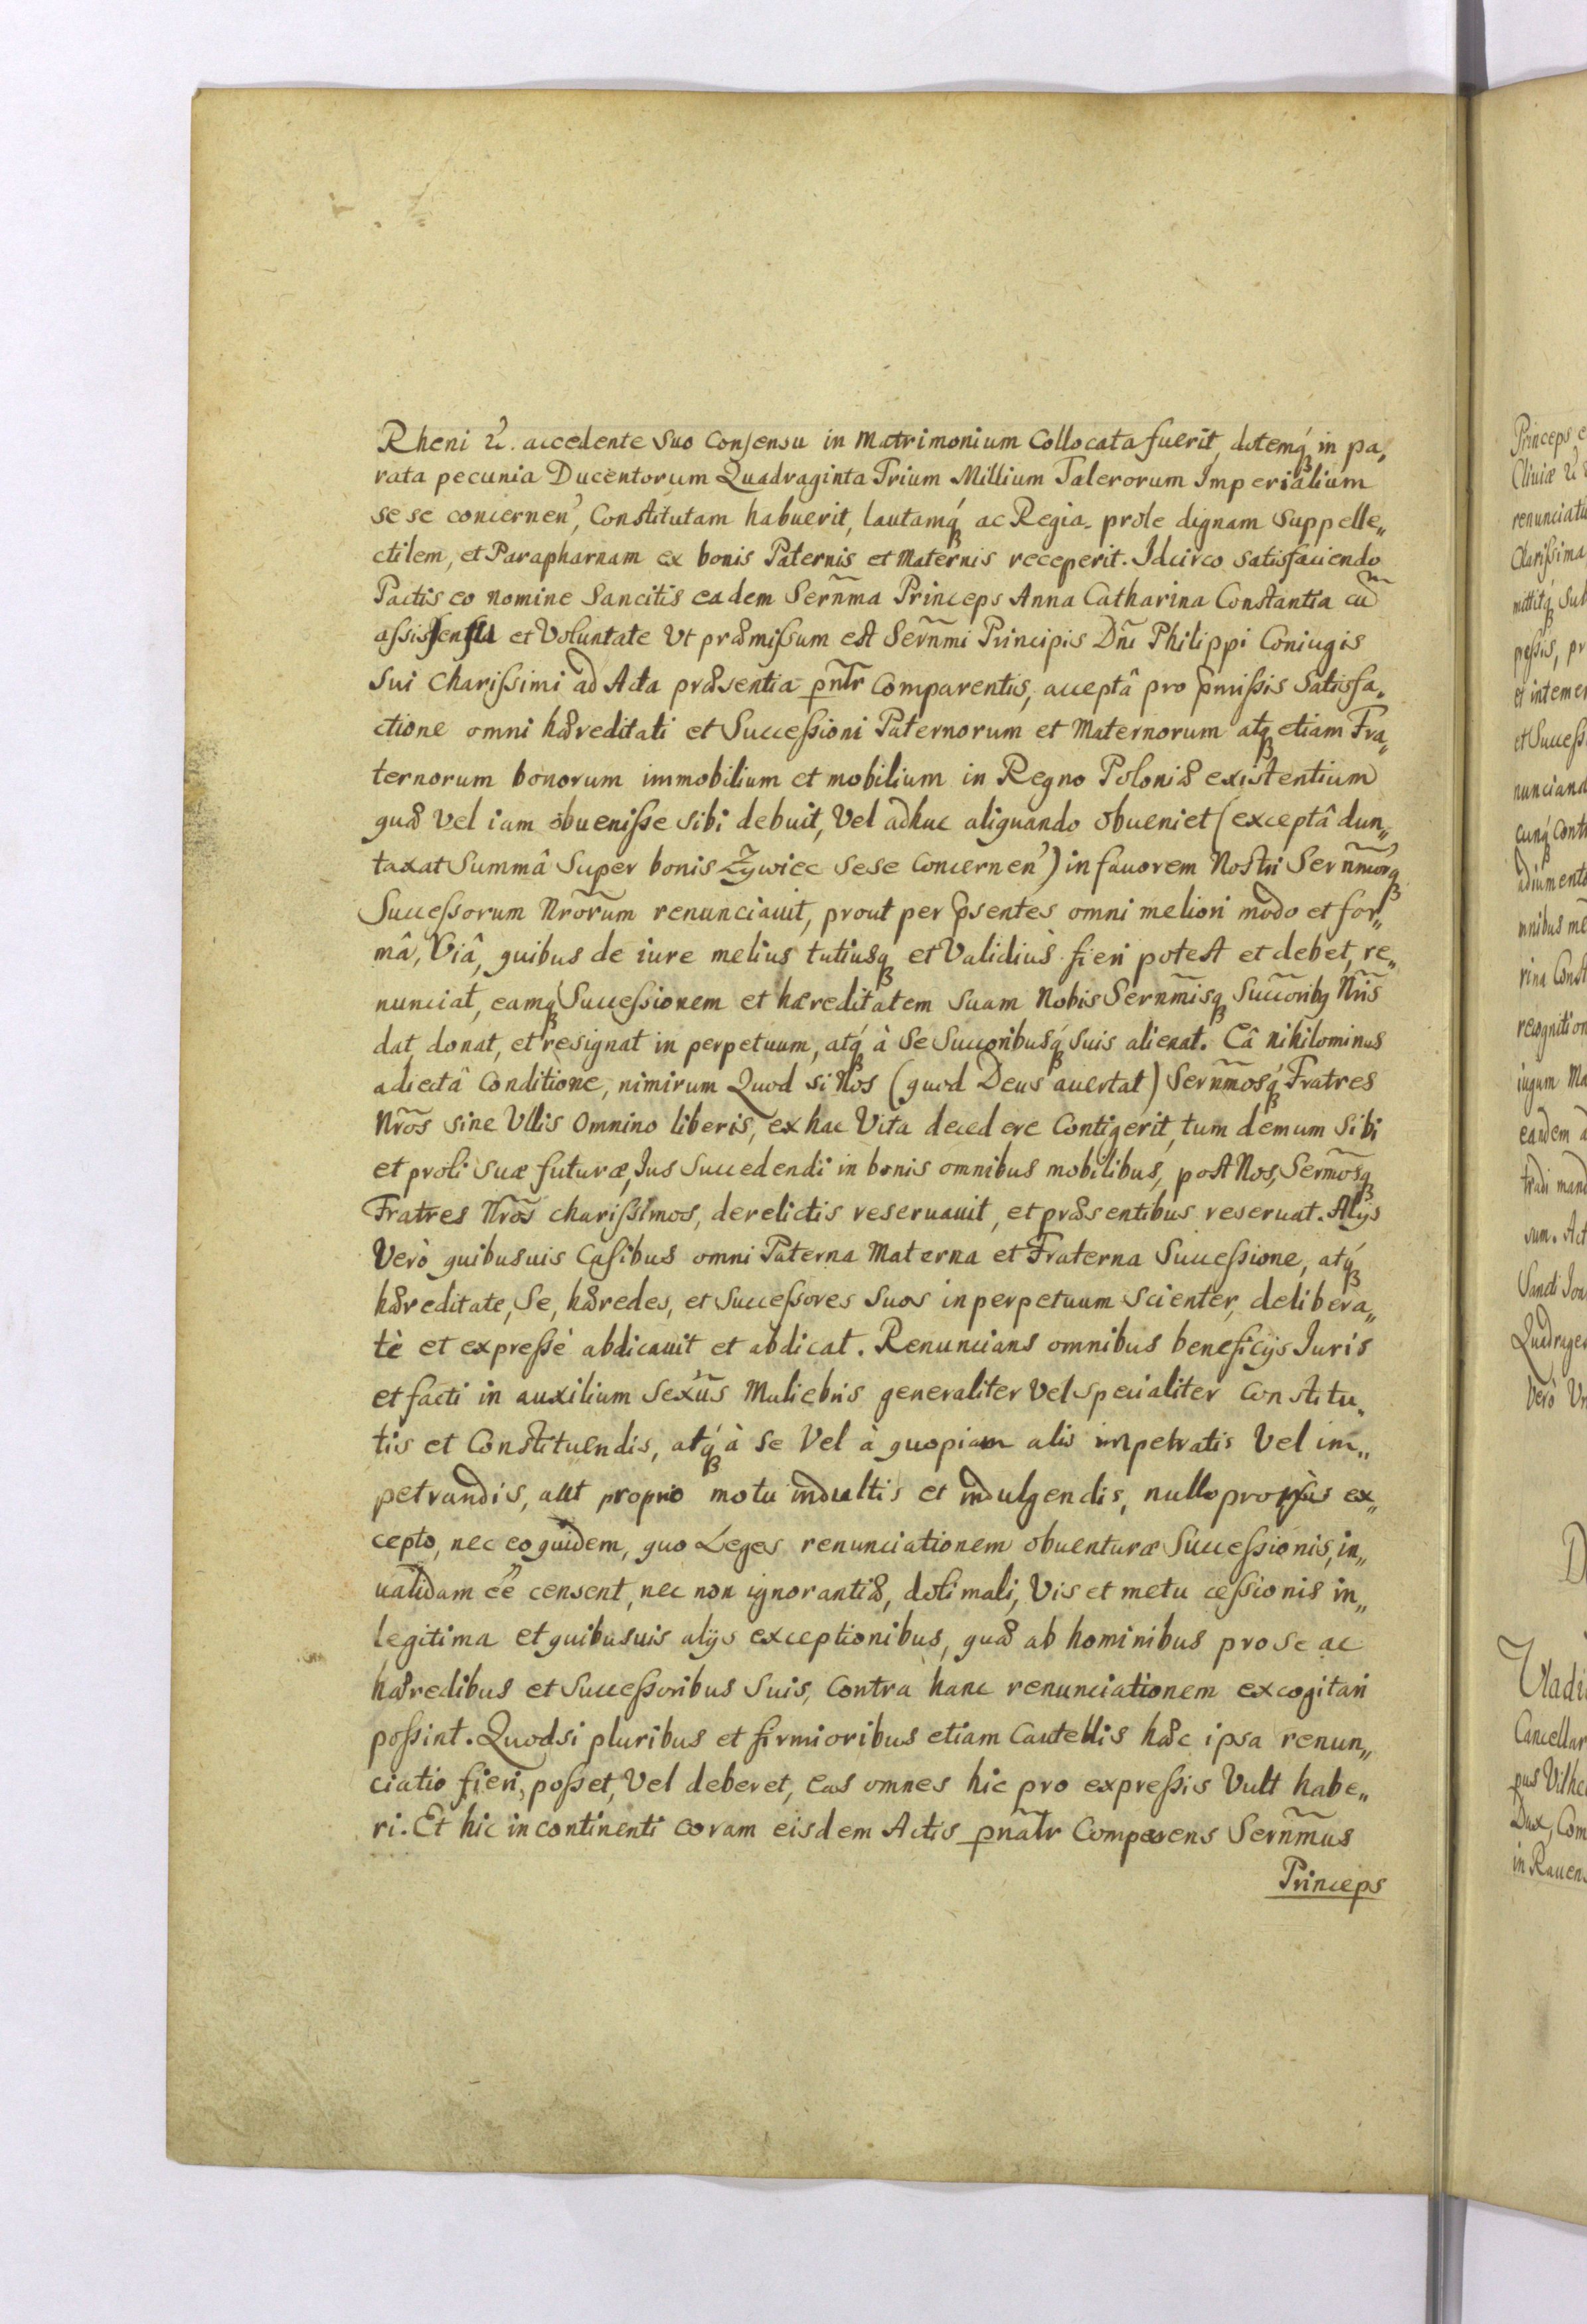 Rheni &c. accedente suo Consensu in Matrimonium Collocata fuerit, dotemq́ in pa„
rata pecunia Ducentorum Quadraginta Trium Millium Talerorum Imperialium
se se concernen̕, Constitutam habuerit, lautamq́ ac Regia prole dignam Suppelle„
ctilem, et Parapharnam ex bonis Paternis et Maternis receperit. Idcirco satisfaciendo
Pactis eo nomine Sancitis eadem Serñma Princeps Anna Catharina Constantia cũ
assistentia et Voluntate Vt præmissum est Serñmi Principis Dñi Philippi Coniugis
Sui Charissimi ad Acta præsentia pñtr Comparentis, acceptâ pro p̃missis Satisfa„
ctione omni hæreditati et Successioni Paternorum et Maternorum atq̨ etiam Fra„
ternorum bonorum immobilium et mobilium in Regno Poloniæ existentium
quæ Vel iam obuenisse sibi debuit, Vel adhuc aliquando obueniet (exceptâ dun„
taxat Summâ Super bonis Żywiec sese Concernen̕) in fauorem Nostri Serñmorq̨
Successorum Nrõrum renunciauit, prout per p̃sentes omni meliori modo et for„
mâ, Viâ, quibus de iure melius tutiusq̨ et Validiùs fieri potest et debet, re„
nunciat, eamq̨ Successionem et hæreditatem suam Nobis Serñmisq̨ Succoribq̨ Nrĩs
dat donat, et resignat in perpetuum, atq́ à Se Succoribusq́ suis alienat. Eâ nihilominus
adiectâ Conditione, nimirum Quod si Nos (quod Deus auertat) Serñmosq́ Fratres
Nrõs sine Vllis omnino liberis, ex hac Vita decedere Contigerit, tum demum Sibi
et proli suæ futuræ, Ius Succedendi in bonis omnibus mobilibus, post Nos, Sermõsq̨
Fratres Nrõs charissimos, derelictis reseruauit, et præsentibus reseruat. Alys
Verò quibusuis Casibus omni Paterna Materna et Fraterna Successione, atq́
hæreditate, Se, hæredes, et Successores Suos in perpetuum Scienter, delibera„
tè et expressè abdicauit et abdicat. Renuncians omnibus beneficijs Iuris
et facti in auxilium Sexũs Muliebris generaliter Vel specialiter Constitu„
tis et Constituendis, atq́ à se Vel à quopiam alio impetratis Vel im„
petrandis, aut proprio motu indultis et indulgendis, nullo prorsùs ex„
cepto, nec eo quidem, quo Leges renunciationem obuenturæ Successionis, in„
ualidam eẽ censent, nec non ignorantiæ, doli mali, Vis et metu cessionis in„
legitima et quibusuis alijs exceptionibus, quæ ab hominibus pro se ac
hæredibus et Successoribus Suis, Contra hanc renunciationem excogitari
possint. Quodsi pluribus et firmioribus etiam Cautellis hæc ipsa renun„
ciatio fieri, posset, Vel deberet, Eas omnes hic pro expressis Vult habe„
ri. Et hic incontinenti coram eisdem Actis pñalr Comparens Serñmus
Princeps